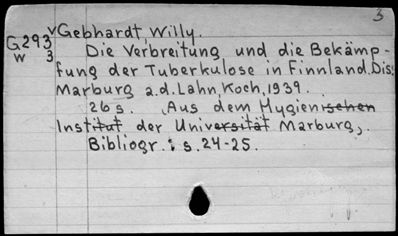 3
vGebhardt, Willy.
G.293 Die Verbreitung und die Bekämp-
w 3 fung der Tuberkulose in Finnland. Dis.
Marburg a.d. Lahn, Koch, 1939.
26 s. (Aus dem Hygienischen
Institut der Universität Marburg).
Bibliogr.: s. 24-25.